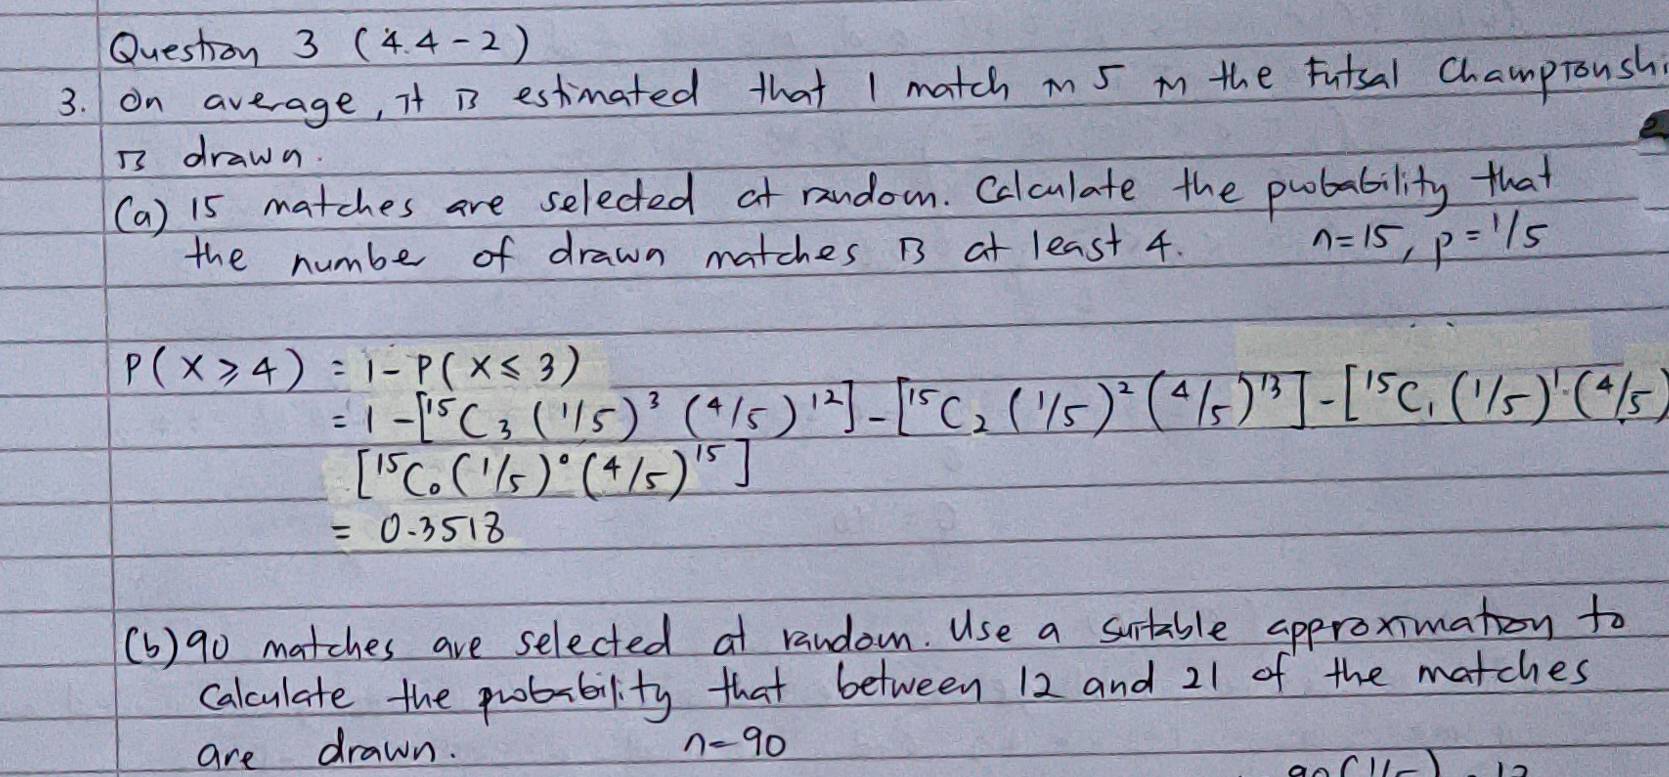 Question 3 (4.4-2)
3. On average, it is estimated that 1 match in 5 in the Futsal Championshi
is drawn.
(a) 15 matches are selected at random. Calculate the probability that
the number of drawn matches is at least 4. n=15, p=1/5
P(X≥4) = 1-P(X≤3)
= 1-[¹⁵C₃(1/5)³(4/5)¹²]-[¹⁵C₂(1/5)²(4/5)¹³]-[¹⁵C₁(1/5)¹(4/5)
[¹⁵C₀(1/5)⁰(4/5)¹⁵]
= 0.3518
(b) 90 matches are selected at random. Use a suitable approximation to
calculate the probability that between 12 and 21 of the matches
are drawn. n=90